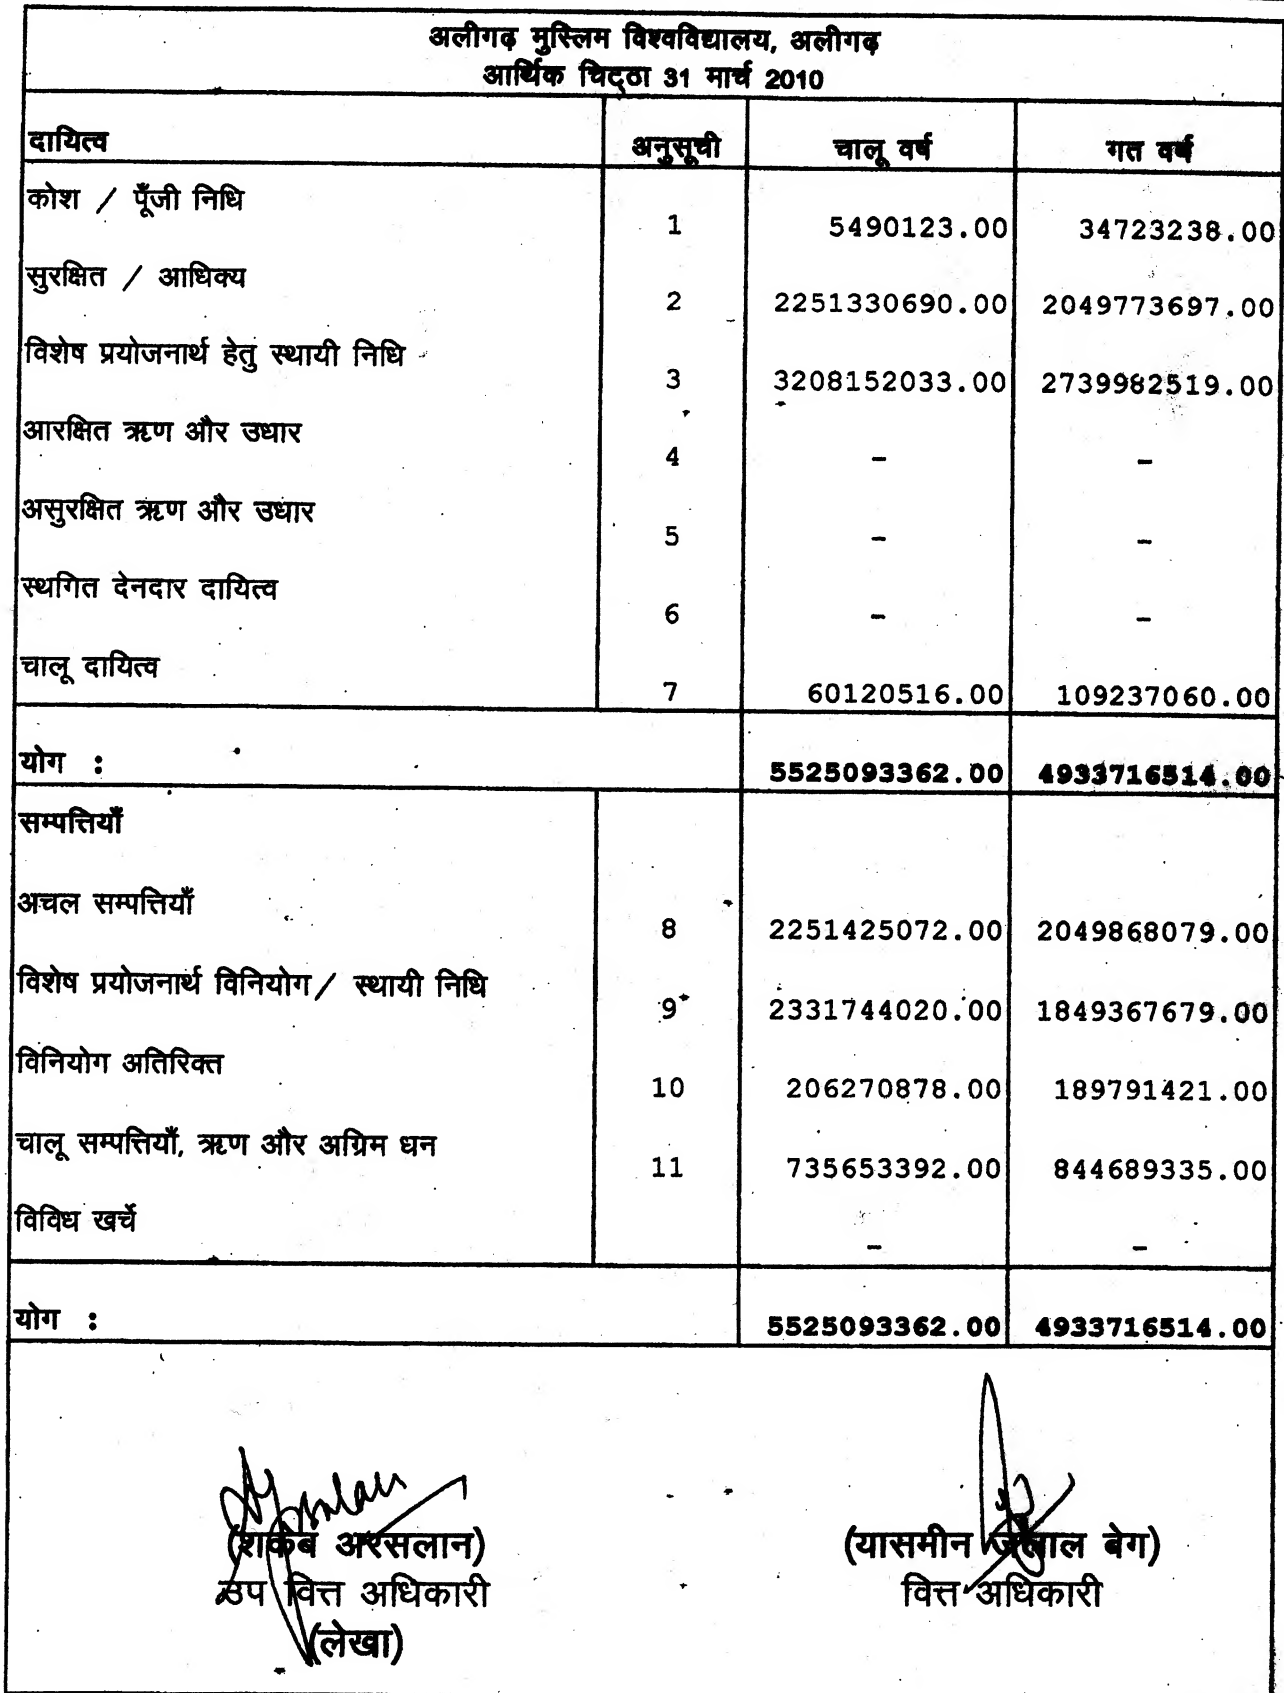 अलीगढ़ मुस्लिम विश्वविद्यालय, अलीगढ़
आर्थिक चिट्ठा 31 मार्च 2010
दायित्व अनुसूची चालू वर्ष गत वर्ष
कोश / पूँजी निधि
1 5490123.00 34723238.00
सुरक्षित / आधिक्य
2 2251330690.00 2049773697.00
विशेष प्रयोजनार्थ हेतु स्थायी निधि
3 3208152033.00 2739982519.00
आरक्षित ऋण और उधार
4 – –
असुरक्षित ऋण और उधार
5 – –
स्थगित देनदार दायित्व
6 – –
चालू दायित्व
7 60120516.00 109237060.00
योग : 5525093362.00 4933716514.00
सम्पत्तियाँ
अचल सम्पत्तियाँ
8 2251425072.00 2049868079.00
विशेष प्रयोजनार्थ विनियोग / स्थायी निधि
9 2331744020.00 1849367679.00
विनियोग अतिरिक्त
10 206270878.00 189791421.00
चालू सम्पत्तियाँ, ऋण और अग्रिम धन
11 735653392.00 844689335.00
विविध खर्चे
– –
योग : 5525093362.00 4933716514.00
(शकेब अरसलान) (यासमीन जलाल बेग)
उप वित्त अधिकारी वित्त अधिकारी
(लेखा)